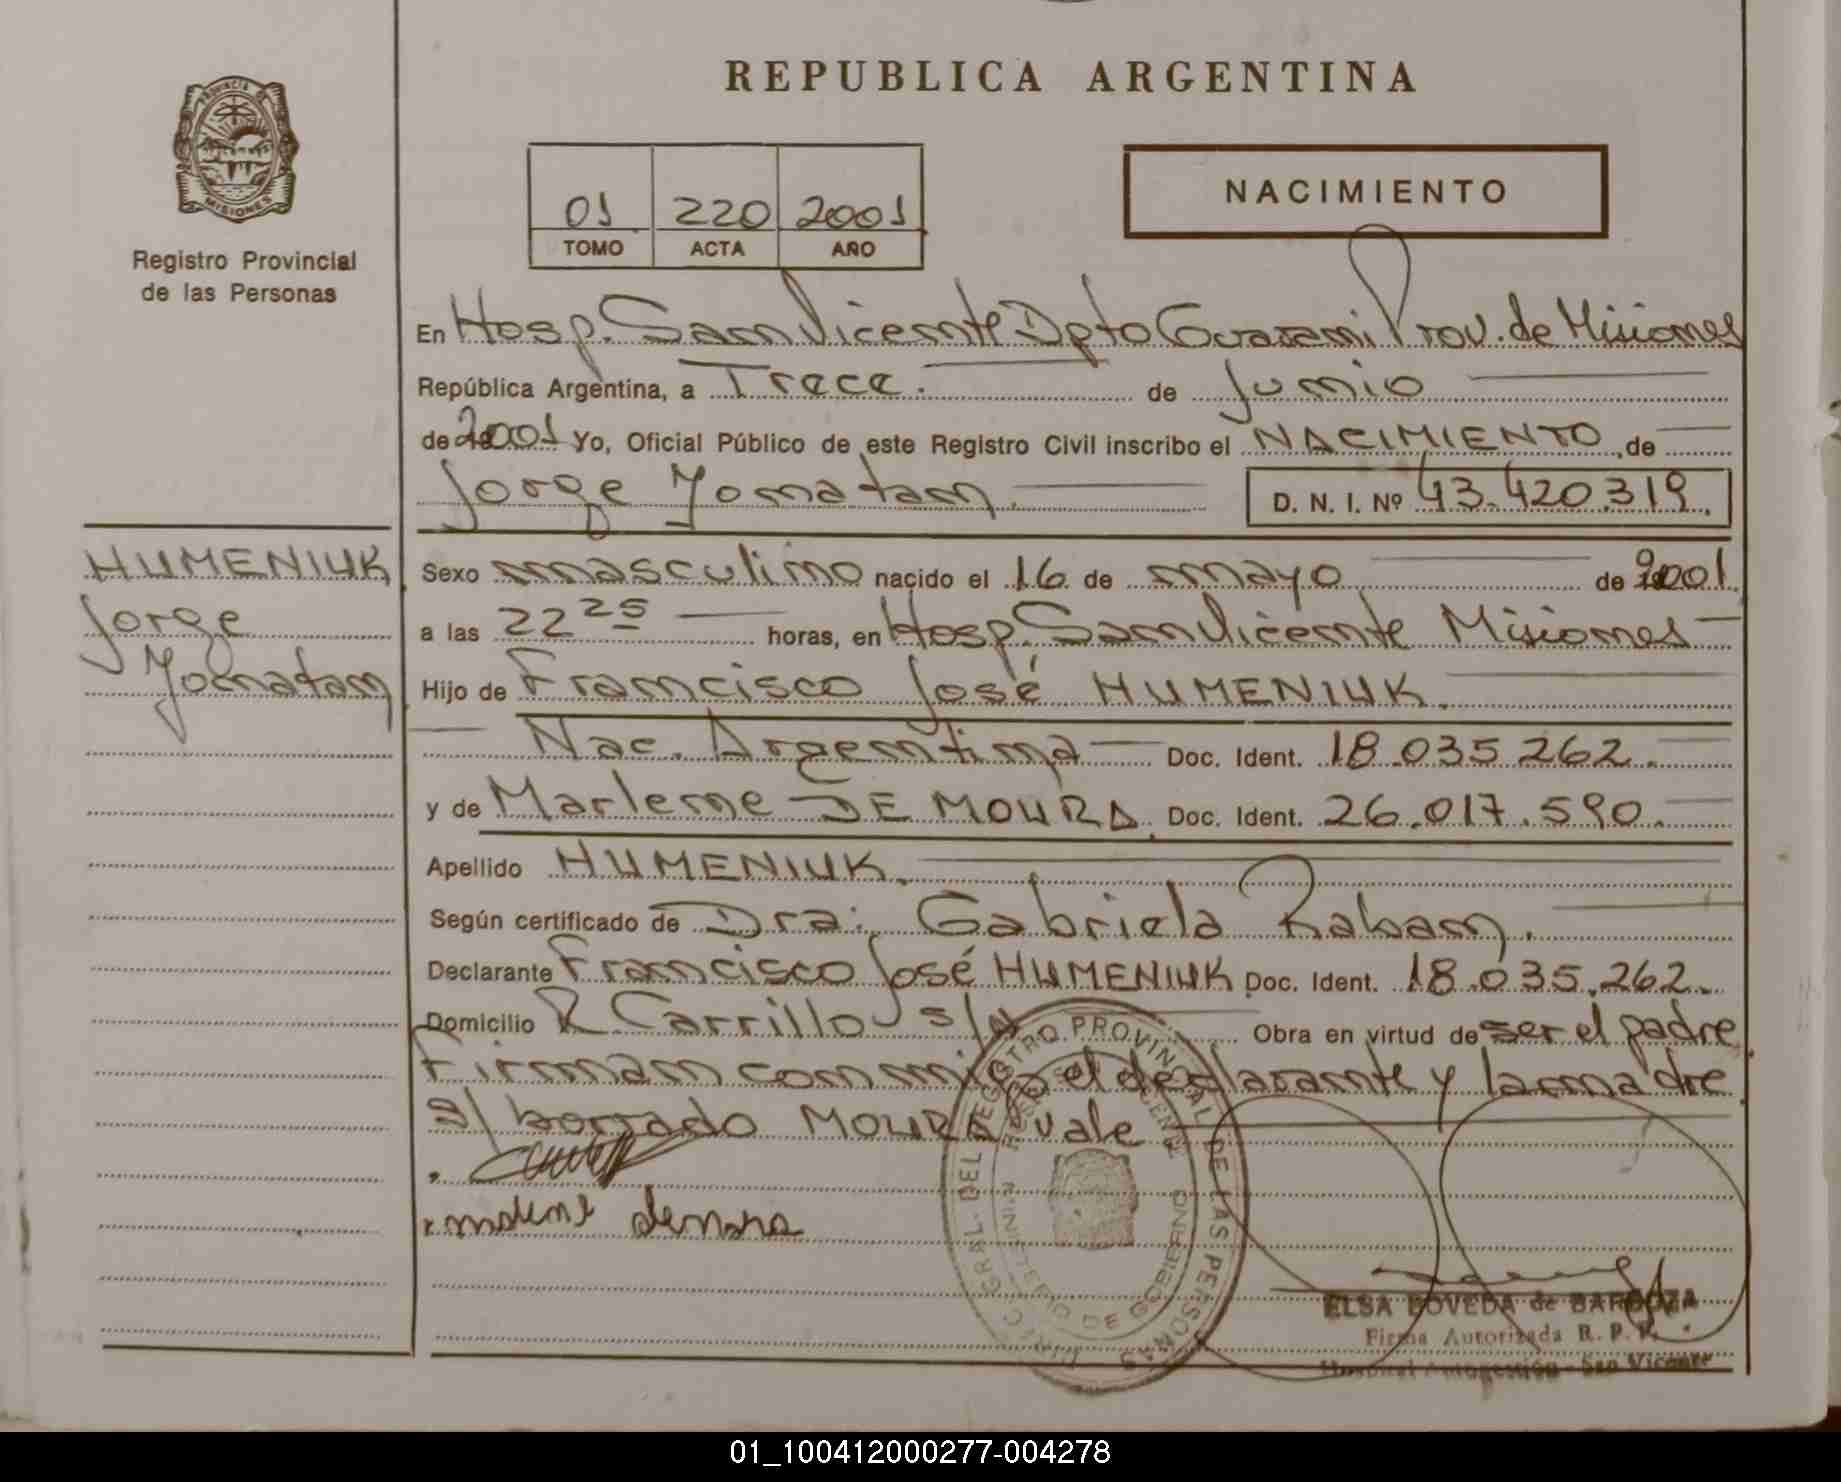 REPUBLICA ARGENTINA
PROVINCIA DE
MISIONES
Registro Provincial
de las Personas
01 220 2001
TOMO ACTA AÑO
NACIMIENTO
En Hosp. San Vicente Dpto Guarani Prov. de Misiones
República Argentina, a Trece. de Junio
de 2001 Yo, Oficial Público de este Registro Civil inscribo el NACIMIENTO de
Jorge Yonatan. D. N. I. Nº 43.420.319.
HUMENIUK
Jorge
Yonatan
Sexo masculino nacido el 16 de mayo de 2001
a las 22 25 horas, en Hosp. San Vicente Misiones
Hijo de Francisco José HUMENIUK.
Nac. Argentina Doc. Ident. 18.035.262.
y de Marlene DE MOURA. Doc. Ident. 26.017.590.
Apellido HUMENIUK.
Según certificado de Dra. Gabriela Raban.
Declarante Francisco José HUMENIUK Doc. Ident. 18.035.262.
Domicilio R Carrillo s/N Obra en virtud de ser el padre
Firman conmigo el declarante y la madre
s/ borrado MOURA vale
DIREC. GRAL. DEL REGISTRO PROVINCIAL DE LAS PERSONAS
MINISTERIO DE GOBIERNO
ELSA BOVEDA de BARBOZA
Firma Autorizada R. P. P.
Hospital Autogestión - San Vicente
01_100412000277-004278